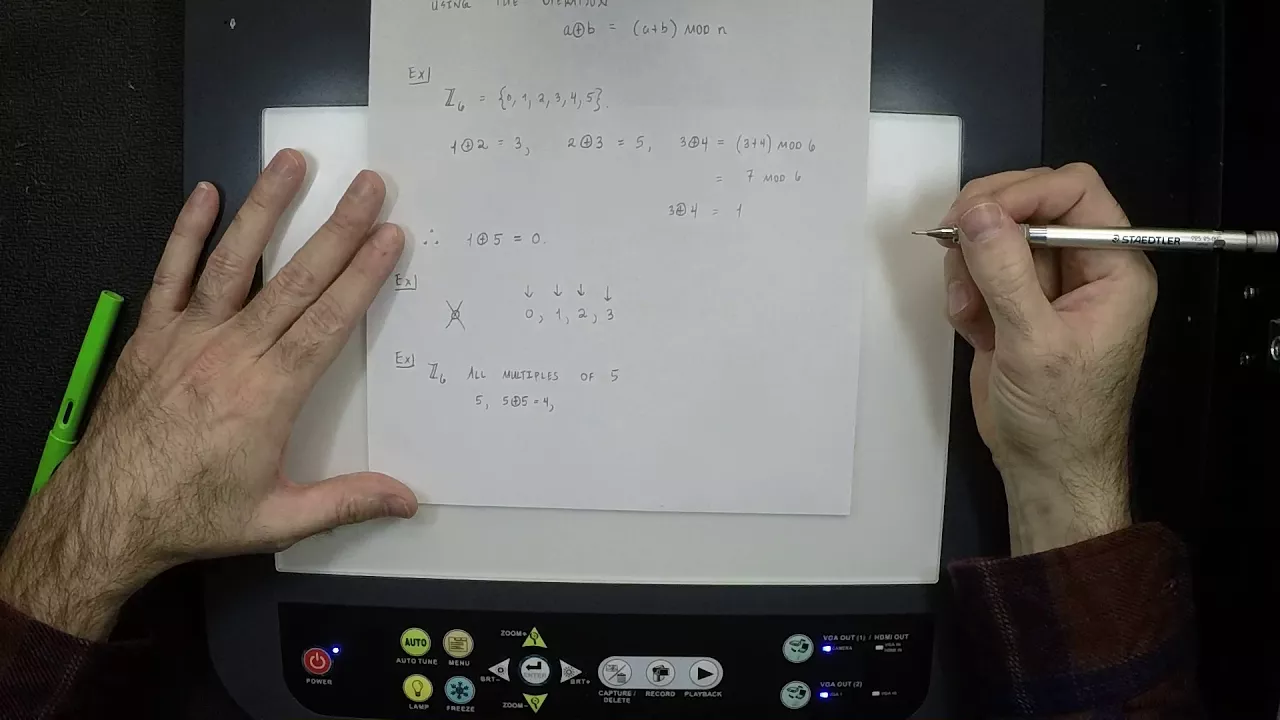 USING THE OPERATION
a⊕b = (a+b) MOD n
Ex|
ℤ6 = {0, 1, 2, 3, 4, 5}.
1⊕2 = 3, 2⊕3 = 5, 3⊕4 = (3+4) MOD 6
= 7 MOD 6
3⊕4 = 1
∴ 1⊕5 = 0.
Ex|
↓ ↓ ↓ ↓
0, 1, 2, 3
Ex| ℤ6 ALL MULTIPLES OF 5
5, 5⊕5 = 4,
STAEDTLER
POWER
AUTO
AUTO TUNE
MENU
LAMP
FREEZE
ZOOM+
BRT-
ENTER
BRT+
ZOOM-
CAPTURE / DELETE
RECORD
PLAYBACK
VGA OUT (1) / HDMI OUT
CAMERA
VGA OUT (2)